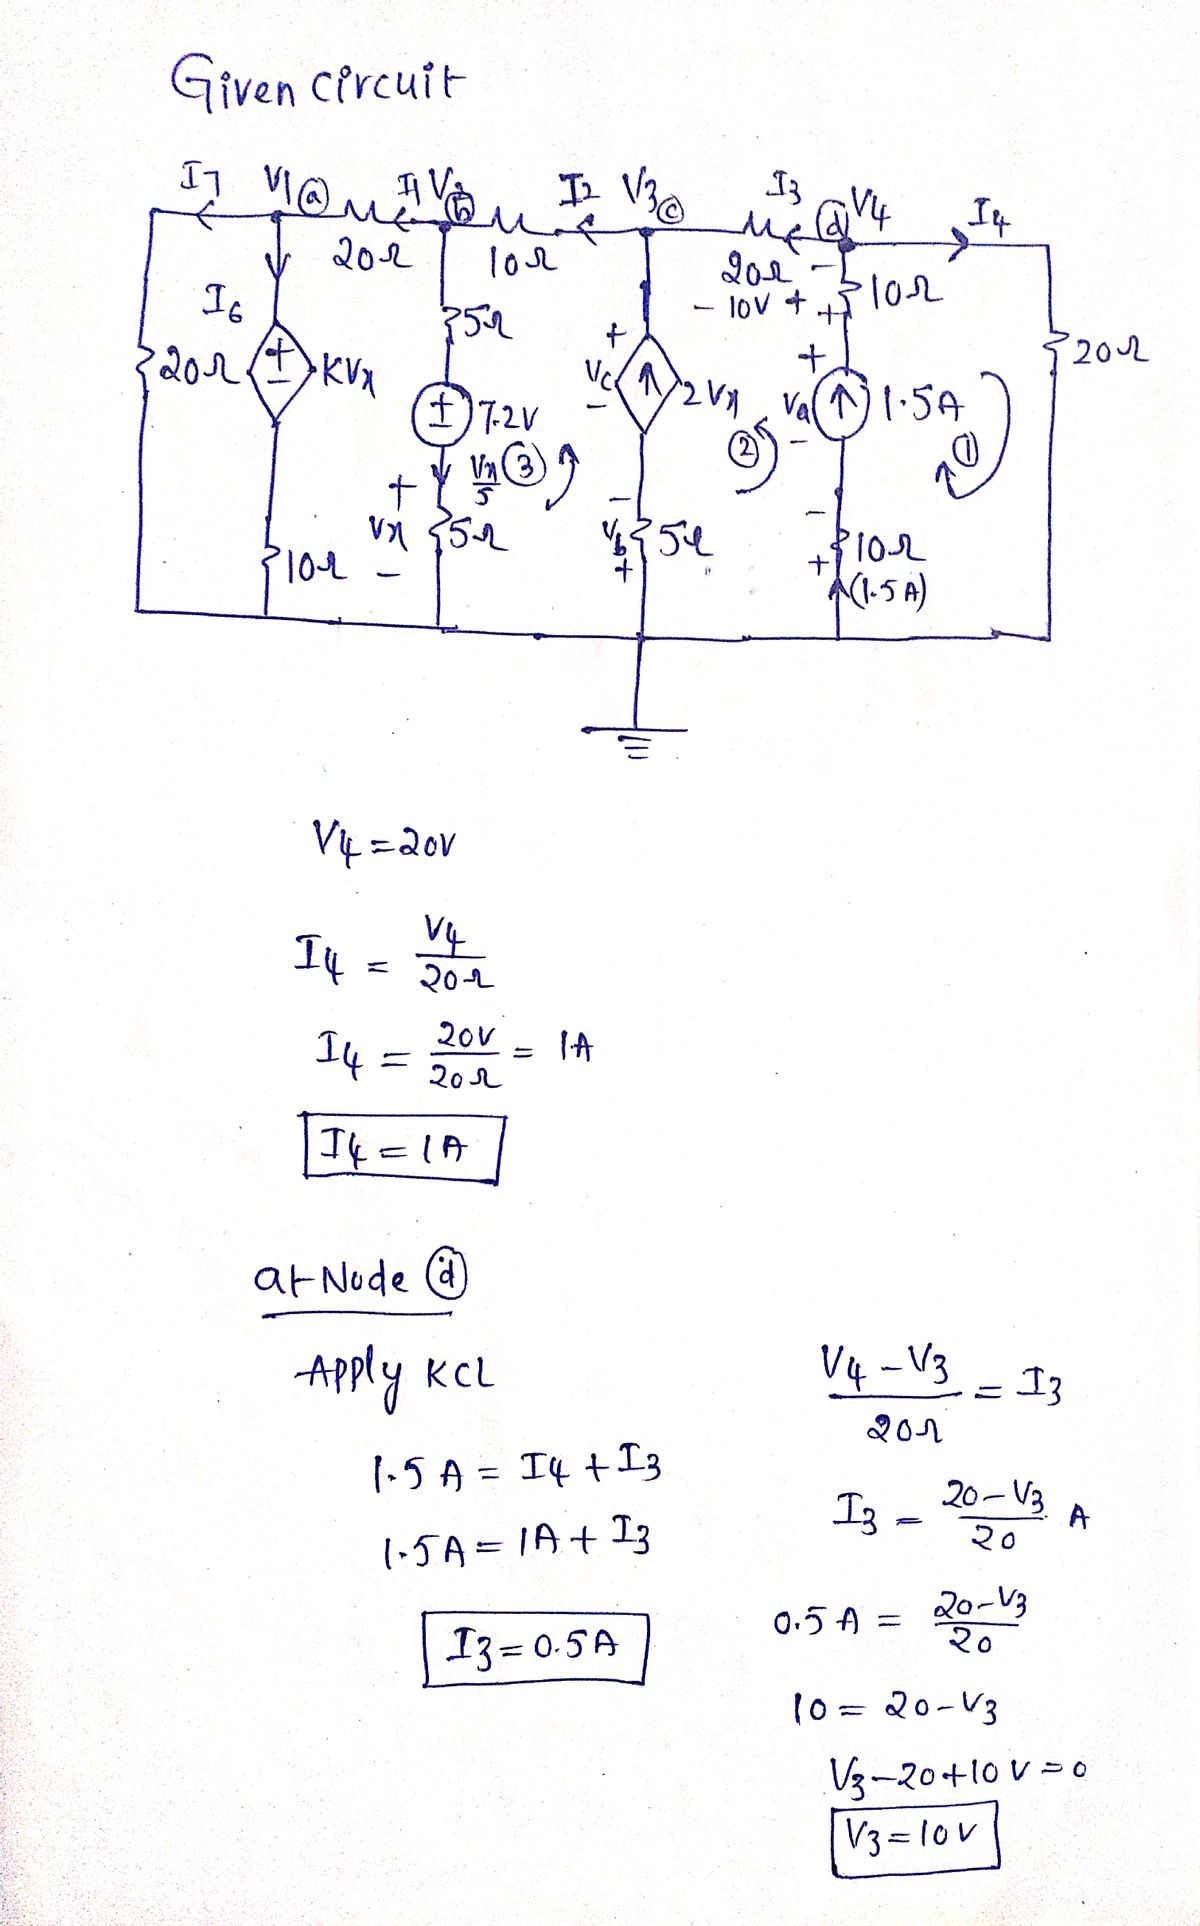 Given circuit
I7 V1 ⓐ I1 V2 ⓑ I2 V3 ⓒ I3 ⓓ V4 I4
20Ω 10Ω 20Ω - 10Ω
I6 5Ω - 10V + +
20Ω + - KVx + Vc - 2Vx + Va - 1.5A 20Ω
+ - 7.2V ② ①
+ Vx/5 ③ - -
Vx 5Ω Vb 5Ω 10Ω
10Ω - + + (1.5A)
V4 = 20V
I4 = V4/20Ω
I4 = 20V/20Ω = 1A
I4 = 1A
at Node ⓓ
Apply KCL
1.5 A = I4 + I3
1.5A = 1A + I3
I3 = 0.5A
V4 - V3/20Ω = I3
I3 = 20 - V3/20 A
0.5 A = 20 - V3/20
10 = 20 - V3
V3 - 20 + 10 V = 0
V3 = 10V